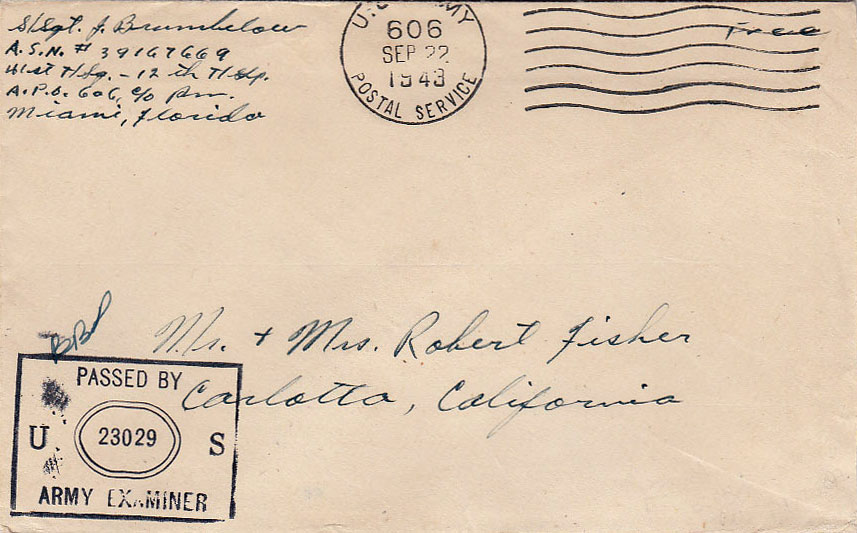 S/Sgt. J. Brumbelow
A.S.N. # 39167669
41st T/Sq. - 12th T/Gp.
A.P.O. 606, c/o Pm.
Miami, Florida
U.S. ARMY
606
SEP 22
1943
POSTAL SERVICE
Free
Mr. + Mrs. Robert Fisher
Carlotta, California
PASSED BY
U 23029 S
ARMY EXAMINER